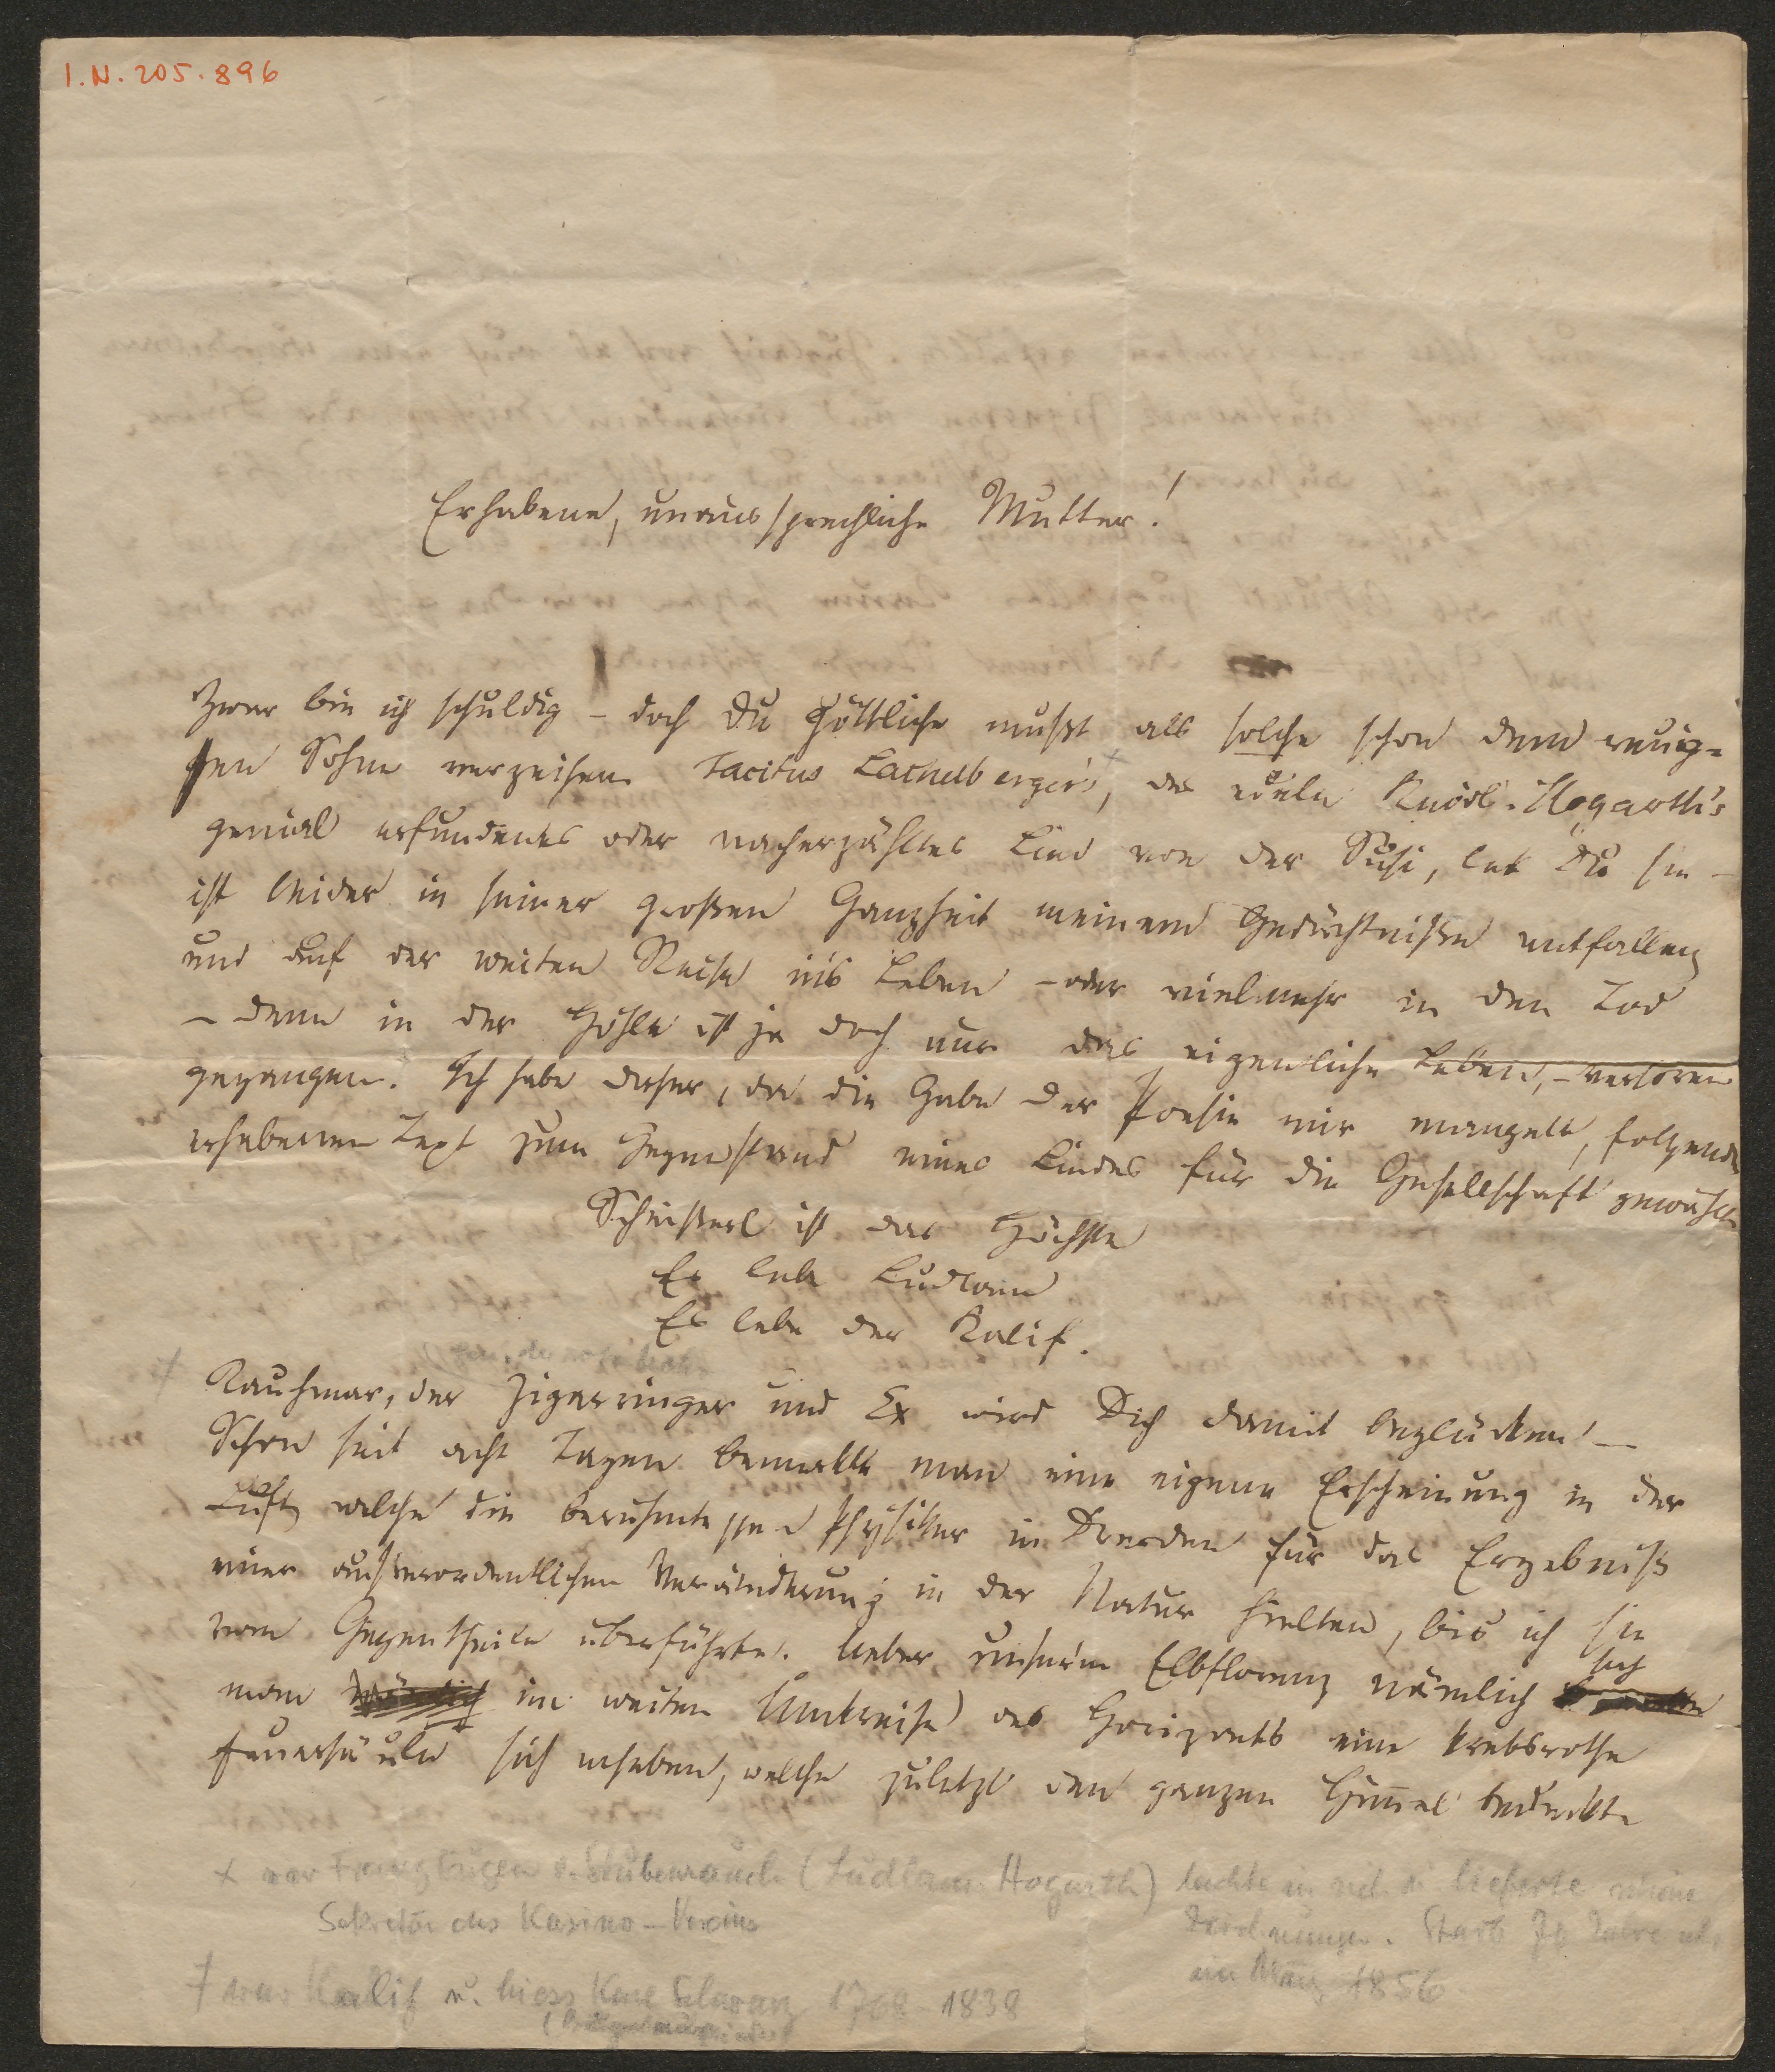 I.N. 205.896
Erhabene, unaussprechliche Mutter!
Zwar bin ich schuldig – doch Du Göttliche mußt als solche schon dem reuig-
en Sohne verzeihen. Tacitus Lachelberger's +, des edeln Knödl-Hogarth's
genial erfundenes oder nacherzähltes Lied von der Susi,
ist leider in seiner großen Ganzheit meinem Gedächtnisse entfallen
und auf der weiten Reise in's Leben – oder vielmehr in den Tod
– denn in der Höhle ist ja doch nur das eigentliche Leben, – verloren
gegangen. Ich habe daher, da die Gabe der Poesie mir mangelt, folgenden
erhabenen Text zum Gegenstand eines Liedes für die Gesellschaft gewählt
Scheißerl ist das Höchste
Es lebe Ludlam
Es lebe der Kalif.
Rauchmar, der Zigarringer und Ex wird Dich damit beglücken! –
Schon seit acht Tagen bemerkte man eine eigene Erscheinung in der
Luft, welche die berühmtesten Physiker in Dresden für das Ergebniß
einer außerordentlichen Veränderung in der Natur hielten, bis ich sie
vom Gegentheile überführte. Ueber unserm Elbflorenz nämlich sah
man im weiten Umkreise des Horizonts eine krebsrothe
Feuersäule sich erheben, welche zuletzt den ganzen Himel bedeckte
+ war Franz v. Stubenrauch (Ludlam Hogarth) lieferte
Sekretär des Kasino-Vereins
Zeichnungen. Starb
im März 1856.
‡ war Kalif u. hiess Karl Schwarz 1768–1838